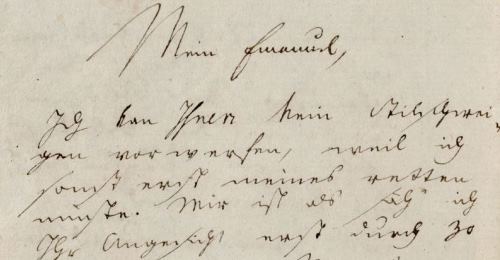 Mein Emanuel,
Ich kan Ihnen kein Stilschwei-
gen vorwerfen, weil ich
sonst erst meines retten
müste. Mir ist als säh' ich
Ihr Angesicht erst durch 30